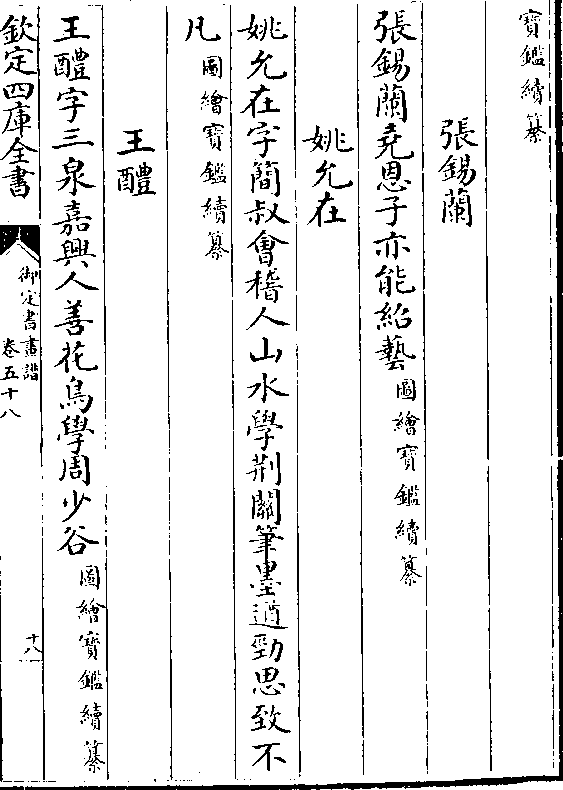 寶鑑續纂
張錫蘭
張錫蘭堯恩子亦能紹藝圖繪寶鑑續纂
姚允在
姚允在字簡叔會稽人山水學荆關筆墨遒勁思致不
凡圖繪寶鑑續纂
王醴
王醴字三泉嘉興人善花鳥學周少谷圖繪寶鑑續纂
欽定四庫全書
御定書畫譜
卷五十八
十八